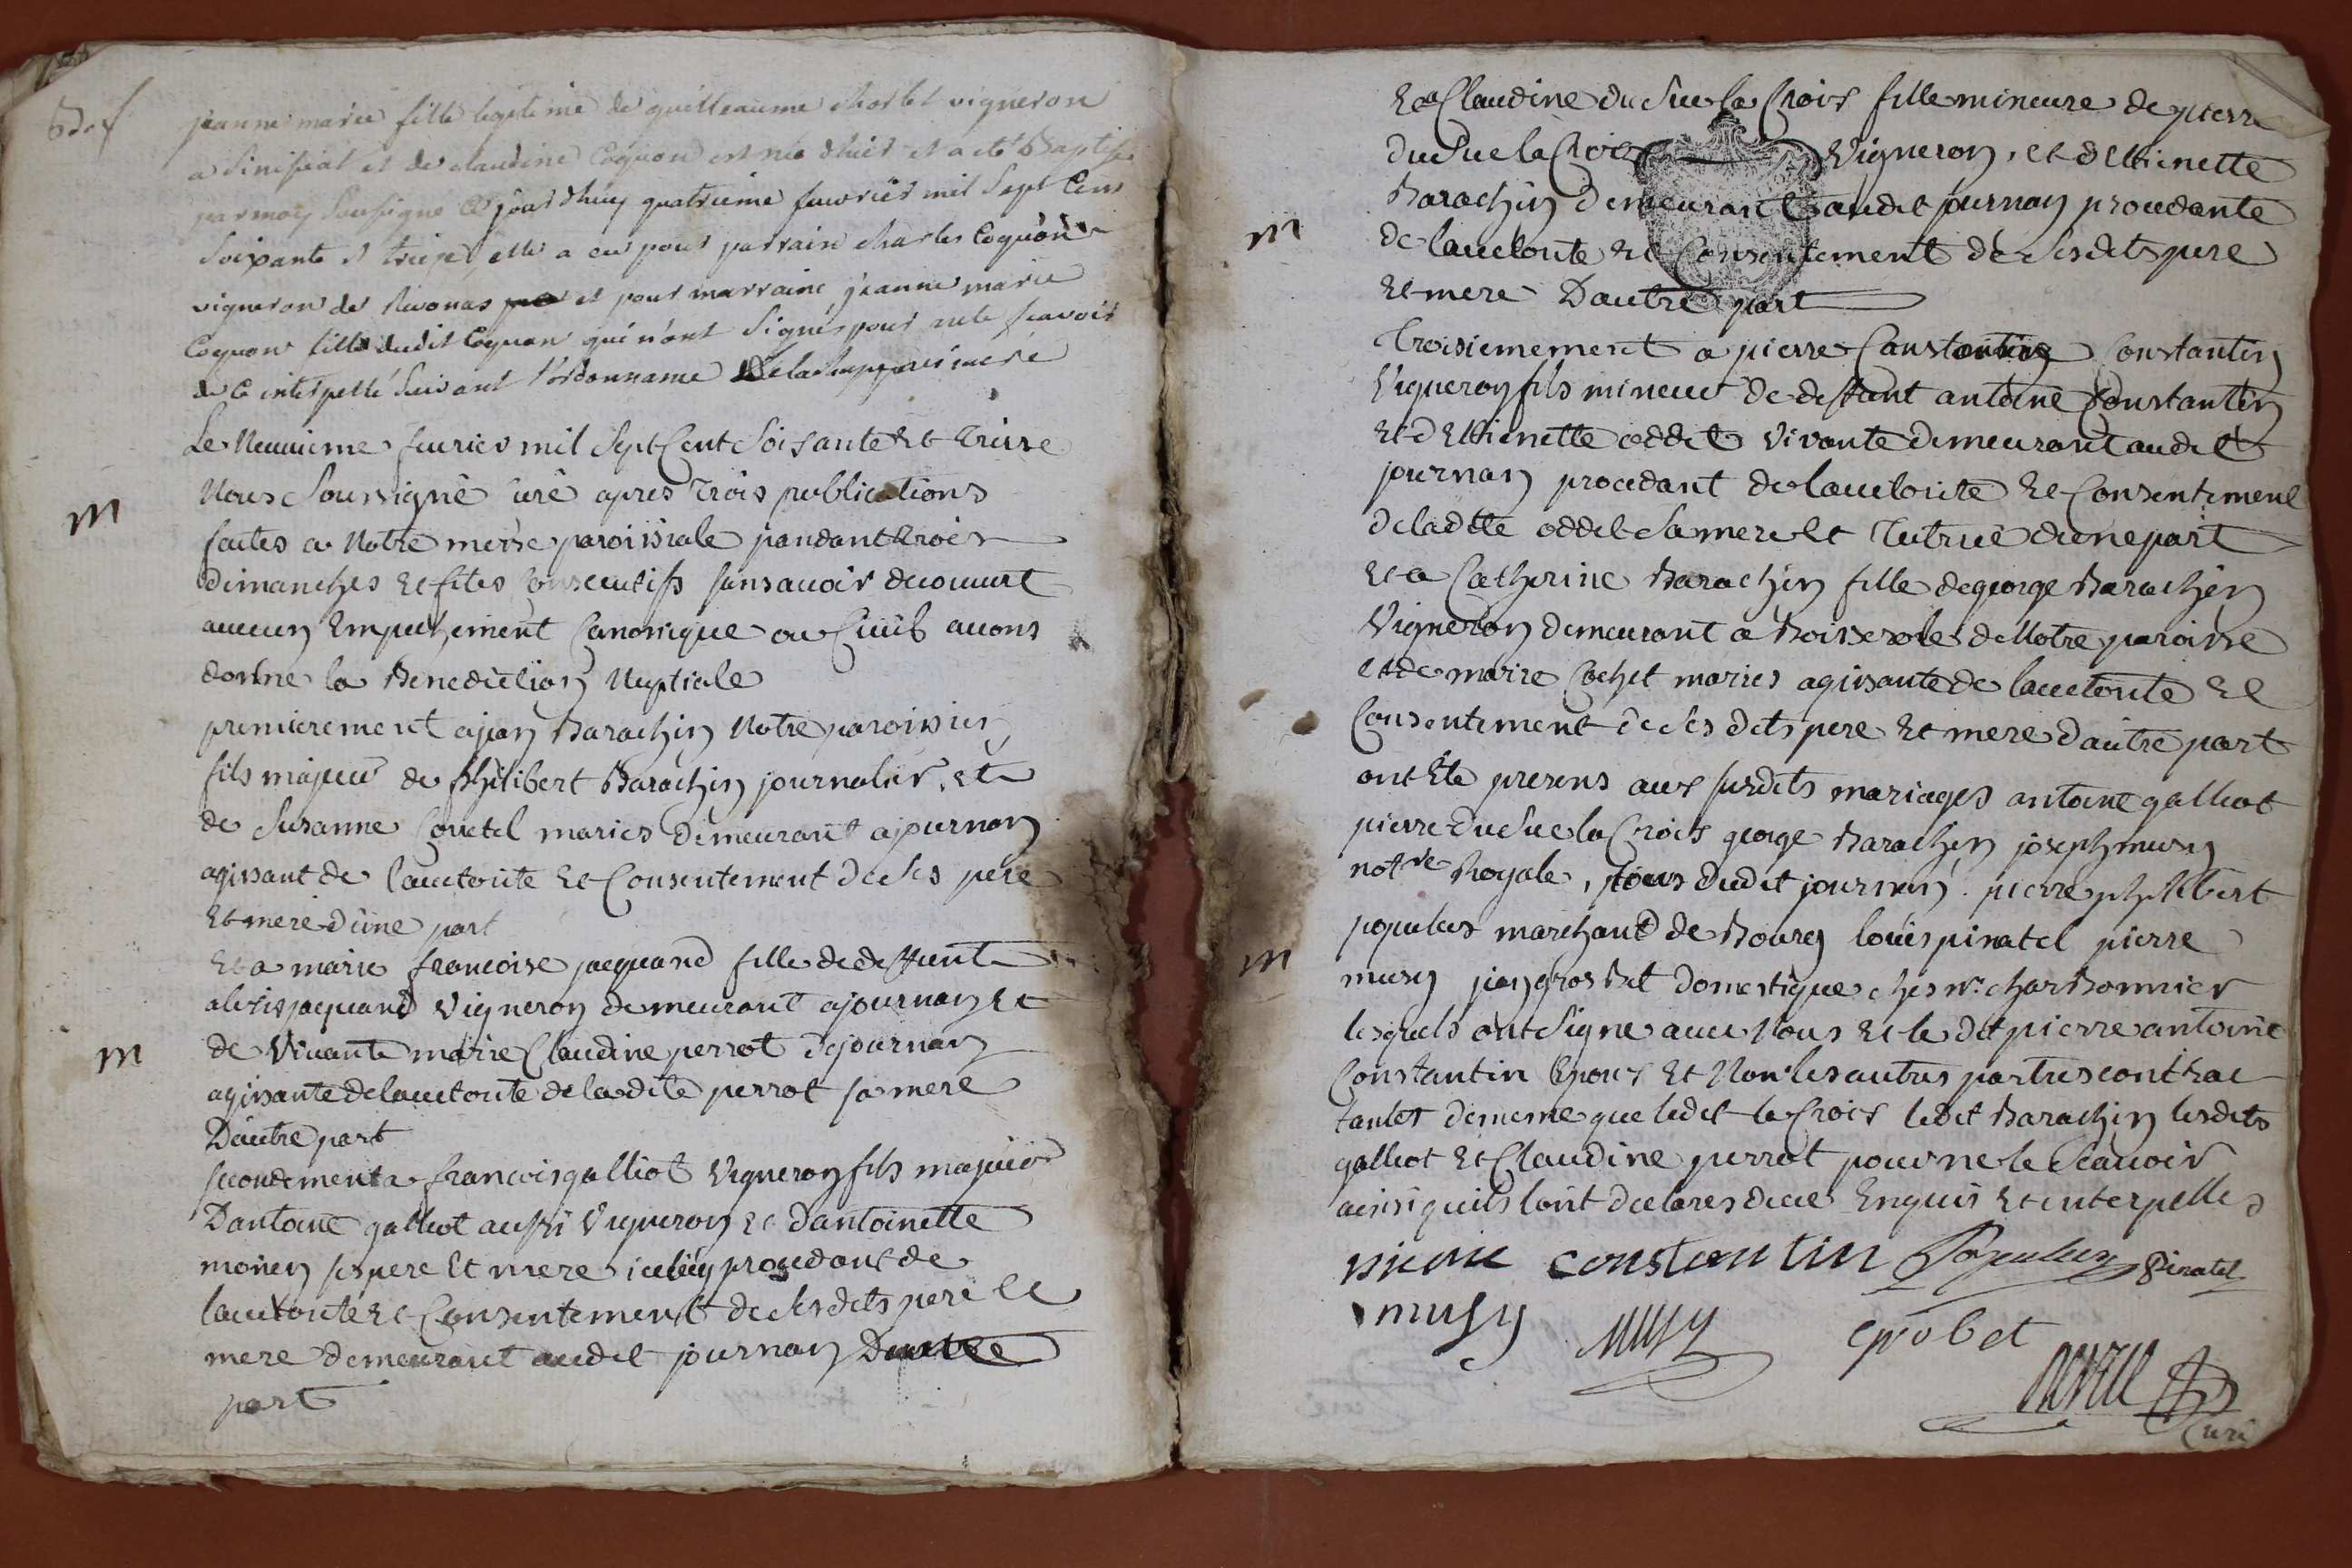 jeanne marie fille legitime de guilleaume Charlet vigneron
a Simifiat et de claudine Coquon est née d'hier et a eté Baptisée
par moy Soussigné Ce jourdhuy quatrieme fevrier mil Sept Cens
Soixante et treize, elle a eu pour parrain charles Coquon
vigneron de Revonas et pour marraine jeanne marie
Coquon fille dudit Coquon qui n'ont Signé pour ne le scavoir
de ce interpellé Suivant l'ordonnance
Le Neuvieme fevrier mil Sept Cent Soisante Et Treise
m
Nous Soussigné curé apres Trois publications
faites a Notre messe paroissiale pandant trois
dimanches Et fetes Consecutifs sans avoir decouvert
aucun Empechement Canonique ou Civil avons
donné la Benediction Nuptiale
premierement a jean Barachin Notre paroissien
fils majeur de philibert Barachin journalier, et
de Susanne Convtel maries demeurant a journan
agissant de l'auctorité Et Consentement de Ses pere
Et mere d'une part
Et a marie francoise jacquand fille de deffunt
alexis jacquand Vigneron demeurant a journan Et
m
de Vivante marie Claudine perrot de journan
agissante de lauctorité de ladite perrot sa mere
D'autre part
secondement a francois galliot Vigneron fils majeur
D'antoine galliot aussi Vigneron Et d'antoinette
monin ses pere Et mere icelluy procedant de
lauctorité Et Consentement de Ses dits pere Et
mere demeurant audit journan D'une
part
Et a Claudine du Sue la Croix fille mineure de pierre
du Sue la Croix Vigneron, et d'Etienette
Barachin demeurant audit journan procedante
m
de lauctorité Et Consentement de Ses dits pere
Et mere D'autre part
Troisiemement a pierre Constantin
Vigneron fils mineur de deffunt antoine Constantin
et d'Ettienette oddet Vivante demeurant audit
journan procedant de lauctorité Et Consentement
de ladite oddet Sa mere Et Tutrice d'une part
Et a Catherine Barachin fille de george Barachin
Vigneron demeurant a Boisserole de Notre paroisse
et de marie Cochet maries agissante de lauctorité Et
Consentement de Ses dits pere Et mere d'autre part
ont Eté presens aux susdits mariages antoine galliot
pierre du Sue la Croix george Barachin joseph musy
not.re Royale, tous dudit journan. pierre philibert
populus marchand de Bourg louis pinatel pierre
m
musy jean grosbet Domestique ches mr. charbonnier
lesquels ont Signé avec Nous Et le dit pierre antoine
Constantin Epoux Et Non les autres parties contrac
tantes de meme que ledit la Croix ledit Barachin lesdits
galliot Et Claudine perrot pour ne le Scavoir
ainsi quils lont declarés de ce Enquis Et interpelles
pierre constantin Populus Pinatel
musy musy grobet
Curé